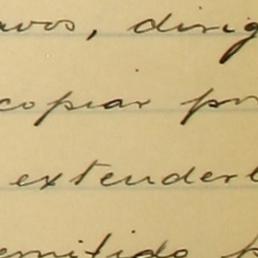 avos, dirig
copiar pr
extenderl
emitido p